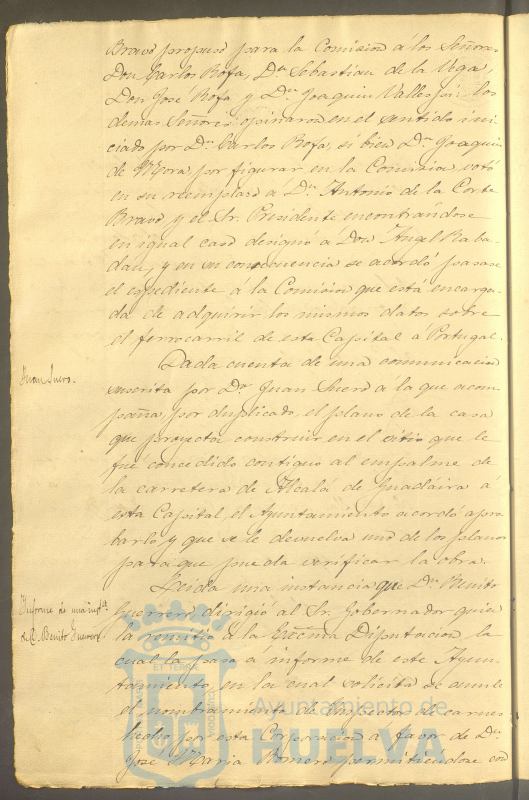 Bravo propuso para la Comision á los Señores
Don Carlos Rofa, Dn Sebastian de la Vega,
Don José Rofa y Dn Joaquin Valles y los
demas Señores opinaron en el sentido ini-
ciado por Dn Carlos Rofa, si bien Dn Joaquin
de Mora, por figurar en la Comision, votó
en su reemplazo á Dn Antonio de la Corte
Bravo y el Sr. Presidente encontrándose
en igual caso designó á Don Ángel Raba-
dan, y en su consecuencia se acordó pasase
el espediente á la Comision que está encarga-
da de adquirir los mismos datos sobre
el ferrocarril de esta Capital á Portugal.
Juan Suero.
Dada cuenta de una comunicacion
suscrita por Dn Juan Suero á la que acom-
paña, por duplicado, el plano de la casa
que proyecta construir en el sitio que le
fué concedido contiguo al empalme de
la carretera de Alcalá de Guadaira á
esta Capital, el Ayuntamiento acordó apro-
barlo y que se le devuelva uno de los planos
para que pueda verificar la obra.
Informe de una inst.a
de D. Benito Guerrero
Leida una instancia que Dn Benito
Guerrero dirigió al Sr. Gobernador quien
la remitió á la Excma Diputacion, la
cual la pasa á informe de este Ayun-
tamiento, en la cual solicita se anule
el nombramiento de Inspector de carnes
hecho por esta Corporacion á favor de Dn
José Maria Romero permitiéndose con
ET TERRÆ
Ayuntamiento de
HUELVA